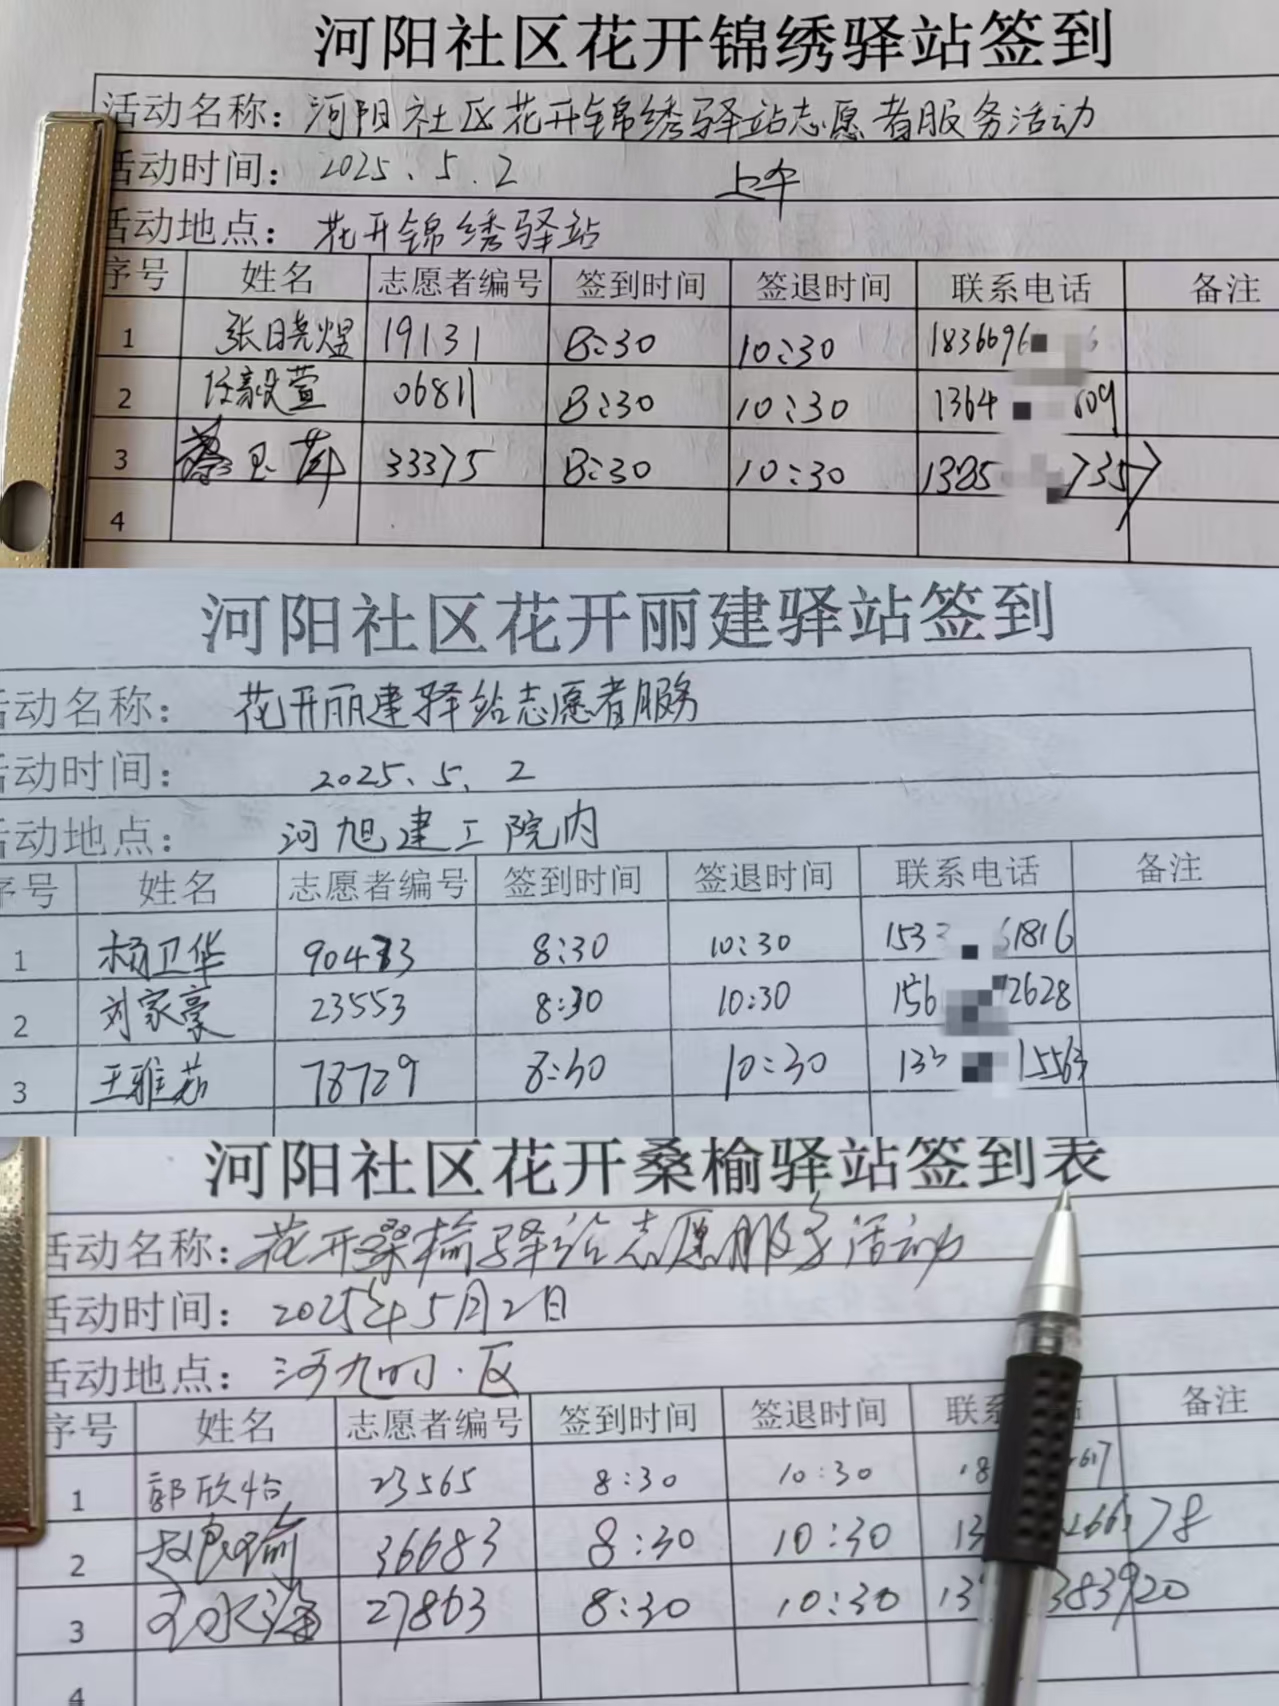 河阳社区花开锦绣驿站签到
活动名称：河阳社区花开锦绣驿站志愿者服务活动
活动时间：2025.5.2 上午
活动地点：花开锦绣驿站
序号 姓名 志愿者编号 签到时间 签退时间 联系电话 备注
1 张晓煜 19131 8:30 10:30 1836696
2 任毅萱 06811 8:30 10:30 1364 609
3 蔡玉萍 33375 8:30 10:30 1385 7357
4
河阳社区花开丽建驿站签到
活动名称：花开丽建驿站志愿者服务
活动时间：2025.5.2
活动地点：河旭建工院内
序号 姓名 志愿者编号 签到时间 签退时间 联系电话 备注
1 杨卫华 90433 8:30 10:30 153 1816
2 刘家豪 23553 8:30 10:30 156 2628
3 王雅茹 78729 8:30 10:30 133 15563
河阳社区花开桑榆驿站签到表
活动名称：花开桑榆驿站志愿服务活动
活动时间：2025年5月2日
活动地点：
序号 姓名 志愿者编号 签到时间 签退时间 联 话 备注
1 郭欣怡 23565 8:30 10:30 18 617
2 36683 8:30 10:30 13 2661 78
3 27863 8:30 10:30 13 383920
4